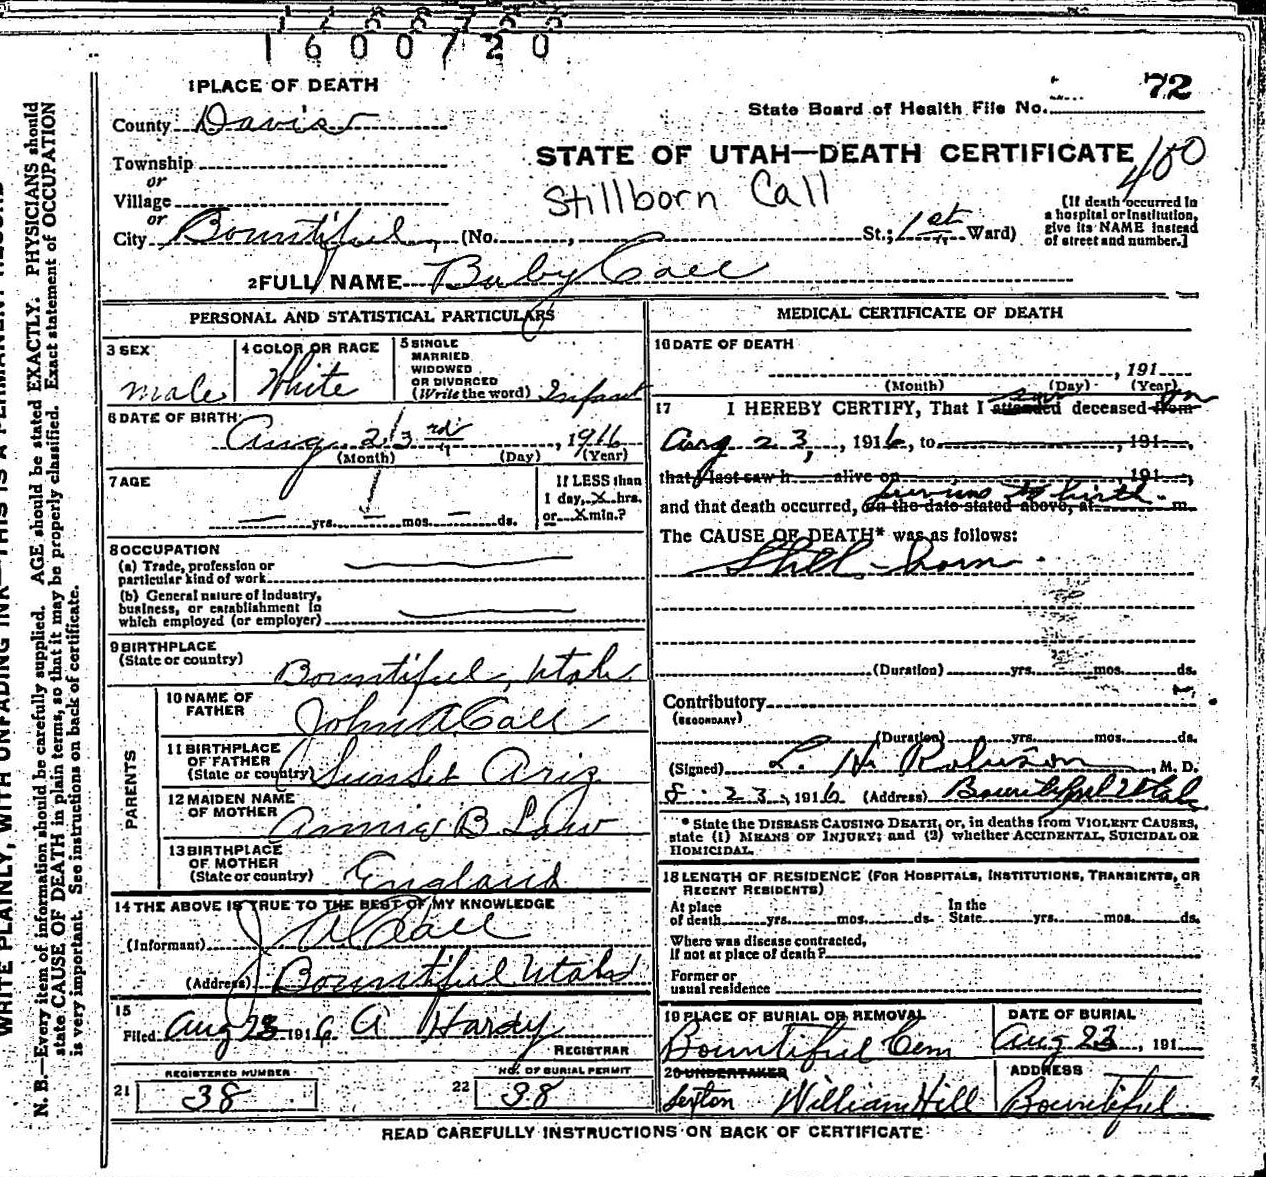 1600720
1 PLACE OF DEATH
72
State Board of Health File No.
County Davis
STATE OF UTAH—DEATH CERTIFICATE
400
Township
or
Village
Stillborn Call
or
City Bountiful, (No. , St.; 1st Ward)
[If death occurred in
a hospital or institution,
give its NAME instead
of street and number.]
2 FULL NAME Baby Call
PERSONAL AND STATISTICAL PARTICULARS
3 SEX
male
4 COLOR OR RACE
White
5 SINGLE
MARRIED
WIDOWED
OR DIVORCED
(Write the word) Infant
6 DATE OF BIRTH
Aug 23rd, 1916
(Month) (Day) (Year)
7 AGE
yrs. mos. ds.
If LESS than
1 day, X hrs.
or X min.?
8 OCCUPATION
(a) Trade, profession or
particular kind of work
(b) General nature of Industry,
business, or establishment in
which employed (or employer)
9 BIRTHPLACE
(State or country)
Bountiful, Utah
PARENTS
10 NAME OF
FATHER
John A Call
11 BIRTHPLACE
OF FATHER
(State or country)
Sunset Ariz
12 MAIDEN NAME
OF MOTHER
Annie B Law
13 BIRTHPLACE
OF MOTHER
(State or country)
England
14 THE ABOVE IS TRUE TO THE BEST OF MY KNOWLEDGE
(Informant) J A Call
(Address) Bountiful Utah
15
Filed Aug 23 1916 A Hardy
REGISTRAR
REGISTERED NUMBER
21 38
NO. OF BURIAL PERMIT
22 38
MEDICAL CERTIFICATE OF DEATH
16 DATE OF DEATH
, 191
(Month) (Day) (Year)
17 I HEREBY CERTIFY, That I attended saw deceased from on
Aug 23, 1916, to 191 ,
that I last saw h alive on 191 ,
and that death occurred, on the date stated above, at m.
previous to birth
The CAUSE OF DEATH* was as follows:
Still-born
(Duration) yrs. mos. ds.
Contributory
(SECONDARY)
(Duration) yrs. mos. ds.
(Signed) L. H. Robinson M. D.
8-23, 1916 (Address) Bountiful Utah
* State the DISEASE CAUSING DEATH, or, in deaths from VIOLENT CAUSES,
state (1) MEANS OF INJURY; and (2) whether ACCIDENTAL, SUICIDAL OR
HOMICIDAL.
18 LENGTH OF RESIDENCE (FOR HOSPITALS, INSTITUTIONS, TRANSIENTS, OR
RECENT RESIDENTS)
At place In the
of death yrs. mos. ds. State yrs. mos. ds.
Where was disease contracted,
if not at place of death?
Former or
usual residence
19 PLACE OF BURIAL OR REMOVAL
Bountiful Cem
DATE OF BURIAL
Aug 23, 191
20 UNDERTAKER
Sexton William Hill
ADDRESS
Bountiful
READ CAREFULLY INSTRUCTIONS ON BACK OF CERTIFICATE
WRITE PLAINLY, WITH UNFADING INK—THIS IS A PERMANENT RECORD
N. B.—Every item of information should be carefully supplied. AGE should be stated EXACTLY. PHYSICIANS should
state CAUSE OF DEATH in plain terms, so that it may be properly classified. Exact statement of OCCUPATION
is very important. See instructions on back of certificate.